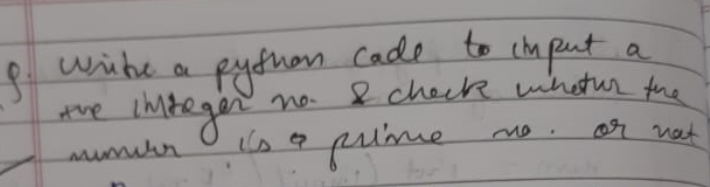 Q. Write a python code to input a
+ve integer no. & check whether the
number is a prime no. or not